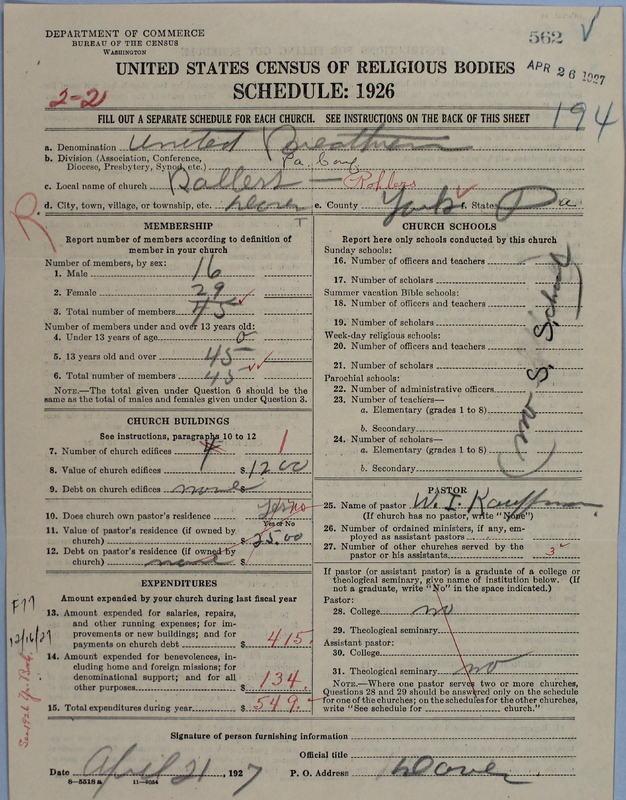 DEPARTMENT OF COMMERCE
BUREAU OF THE CENSUS
WASHINGTON
562 √
APR 26 1927
UNITED STATES CENSUS OF RELIGIOUS BODIES
SCHEDULE: 1926
2-21
194
FILL OUT A SEPARATE SCHEDULE FOR EACH CHURCH. SEE INSTRUCTIONS ON THE BACK OF THIS SHEET
a. Denomination United Breathren
b. Division (Association, Conference, Diocese, Presbytery, Synod, etc.) Pa. Conf
c. Local name of church Rollers — Rohlers
d. City, town, village, or township, etc. Dover e. County York f. State Pa
T
R
MEMBERSHIP
Report number of members according to definition of
member in your church
Number of members, by sex:
1. Male 16
2. Female 29
3. Total number of members 45
Number of members under and over 13 years old:
4. Under 13 years of age 0
5. 13 years old and over 45
6. Total number of members 45
NOTE.—The total given under Question 6 should be the
same as the total of males and females given under Question 3.
CHURCH BUILDINGS
See instructions, paragraphs 10 to 12
7. Number of church edifices 1
8. Value of church edifices $1200
9. Debt on church edifices none $
10. Does church own pastor's residence Yes no
Yes or No
11. Value of pastor's residence (if owned by
church) $ 25.00
12. Debt on pastor's residence (if owned by
church) none $
EXPENDITURES
Amount expended by your church during last fiscal year
13. Amount expended for salaries, repairs,
and other running expenses; for im-
provements or new buildings; and for
payments on church debt $ 415.
14. Amount expended for benevolences, in-
cluding home and foreign missions; for
denominational support; and for all
other purposes $ 134.
15. Total expenditures during year $ 549.
F77
12/16/27
See 1926 Yr. Book.
CHURCH SCHOOLS
Report here only schools conducted by this church
Sunday schools:
16. Number of officers and teachers
17. Number of scholars
Summer vacation Bible schools:
18. Number of officers and teachers
19. Number of scholars
Week-day religious schools:
20. Number of officers and teachers
21. Number of scholars
Parochial schools:
22. Number of administrative officers
23. Number of teachers—
a. Elementary (grades 1 to 8)
b. Secondary
24. Number of scholars—
a. Elementary (grades 1 to 8)
b. Secondary
no S. School
PASTOR
25. Name of pastor W. I. Kauffman
(If church has no pastor, write "None")
26. Number of ordained ministers, if any, em-
ployed as assistant pastors
27. Number of other churches served by the
pastor or his assistants 3
If pastor (or assistant pastor) is a graduate of a college or
theological seminary, give name of institution below. (If
not a graduate, write "No" in the space indicated.)
Pastor:
28. College no
29. Theological seminary
Assistant pastor:
30. College
31. Theological seminary no
NOTE.—Where one pastor serves two or more churches,
Questions 28 and 29 should be answered only on the schedule
for one of the churches; on the schedules for the other churches,
write "See schedule for church."
Signature of person furnishing information
Official title
Date April 21, 1927 P. O. Address Dover
8—5518a 11—9054